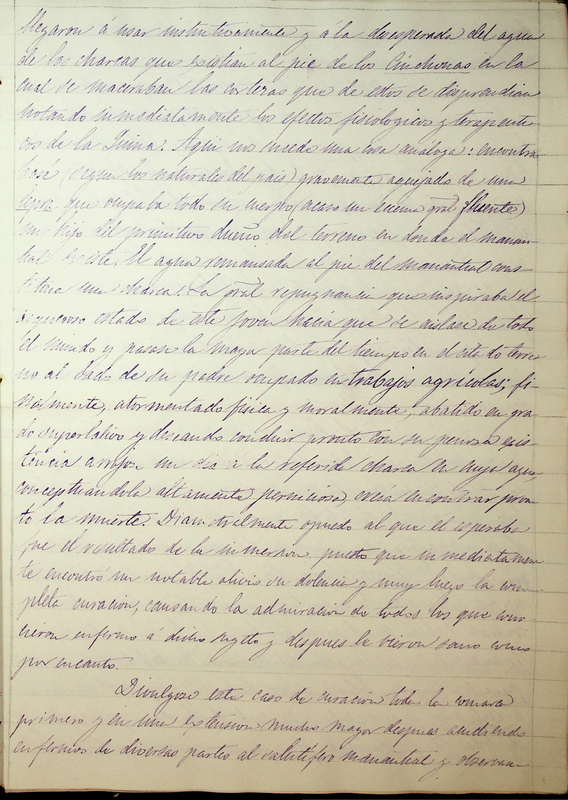 llegaron á usar instintivamente y á la desesperada del agua
de las charcas que existian al pie de los Cinchonas en la
cual se maceraban las cortezas que de estos se disprendian
notando inmediatamente los efectos fisiologicos y terapeuti-
cos de la Quina. Aqui nos sucede una cosa análoga: encontra
base (segun los naturales del pais) gravemente aquejado de una
lepra que ocupaba todo su cuerpo, acaso un eczema gral (fluente)
un hijo del primitivo dueño del terreno en donde el manan-
tial existe. El agua remansada al pie del manantial cons-
tituia una charca. La gral repugnancia que inspiraba el
asqueroso estado de este joven hacia que se aislase de todo
el mundo y pasase la mayor parte del tiempo en el citado terre-
no al lado de su padre ocupado en trabajos agrícolas; fi-
nalmente, atormentado fisica y moralmente, abatido en gra-
do superlativo y deseando concluir pronto con su penosa exis-
tencia arrojose un dia á la referida charca en cuya agua,
conceptuandola altamente perniciosa, creia encontrar pron-
to la muerte. Diametralmente opuesto al que él esperaba
fue el resultado de la inmersion puesto que inmediatamen-
te encontró un notable alivio su dolencia y muy luego la com-
pleta curacion, causando la admiracion de todos los que cono-
cieron enfermo á dicho sugeto y despues le vieron sano como
por encanto.
Divulgose este caso de curacion toda la comarca
primero y en una extension mucho mayor despues acudiendo
enfermos de diversas partes al salutifero manantial y observan-